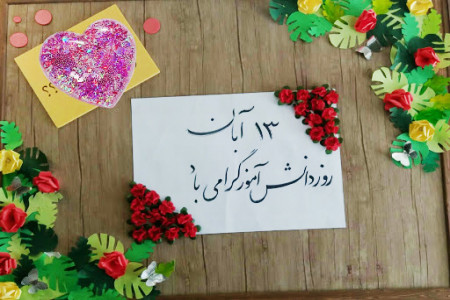 ۱۳ آبان
روز دانش آموز گرامی باد
؟؟